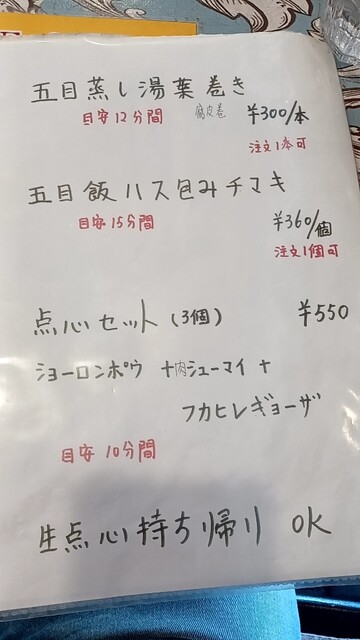 五目蒸し湯葉巻き
目安12分間 腐皮巻 ¥300/本
注文1本可
五目飯ハス包みチマキ
目安15分間 ¥360/個
注文1個可
点心セット(3個) ¥550
ショーロンポウ +肉シューマイ +
フカヒレギョーザ
目安10分間
生点心持ち帰り OK